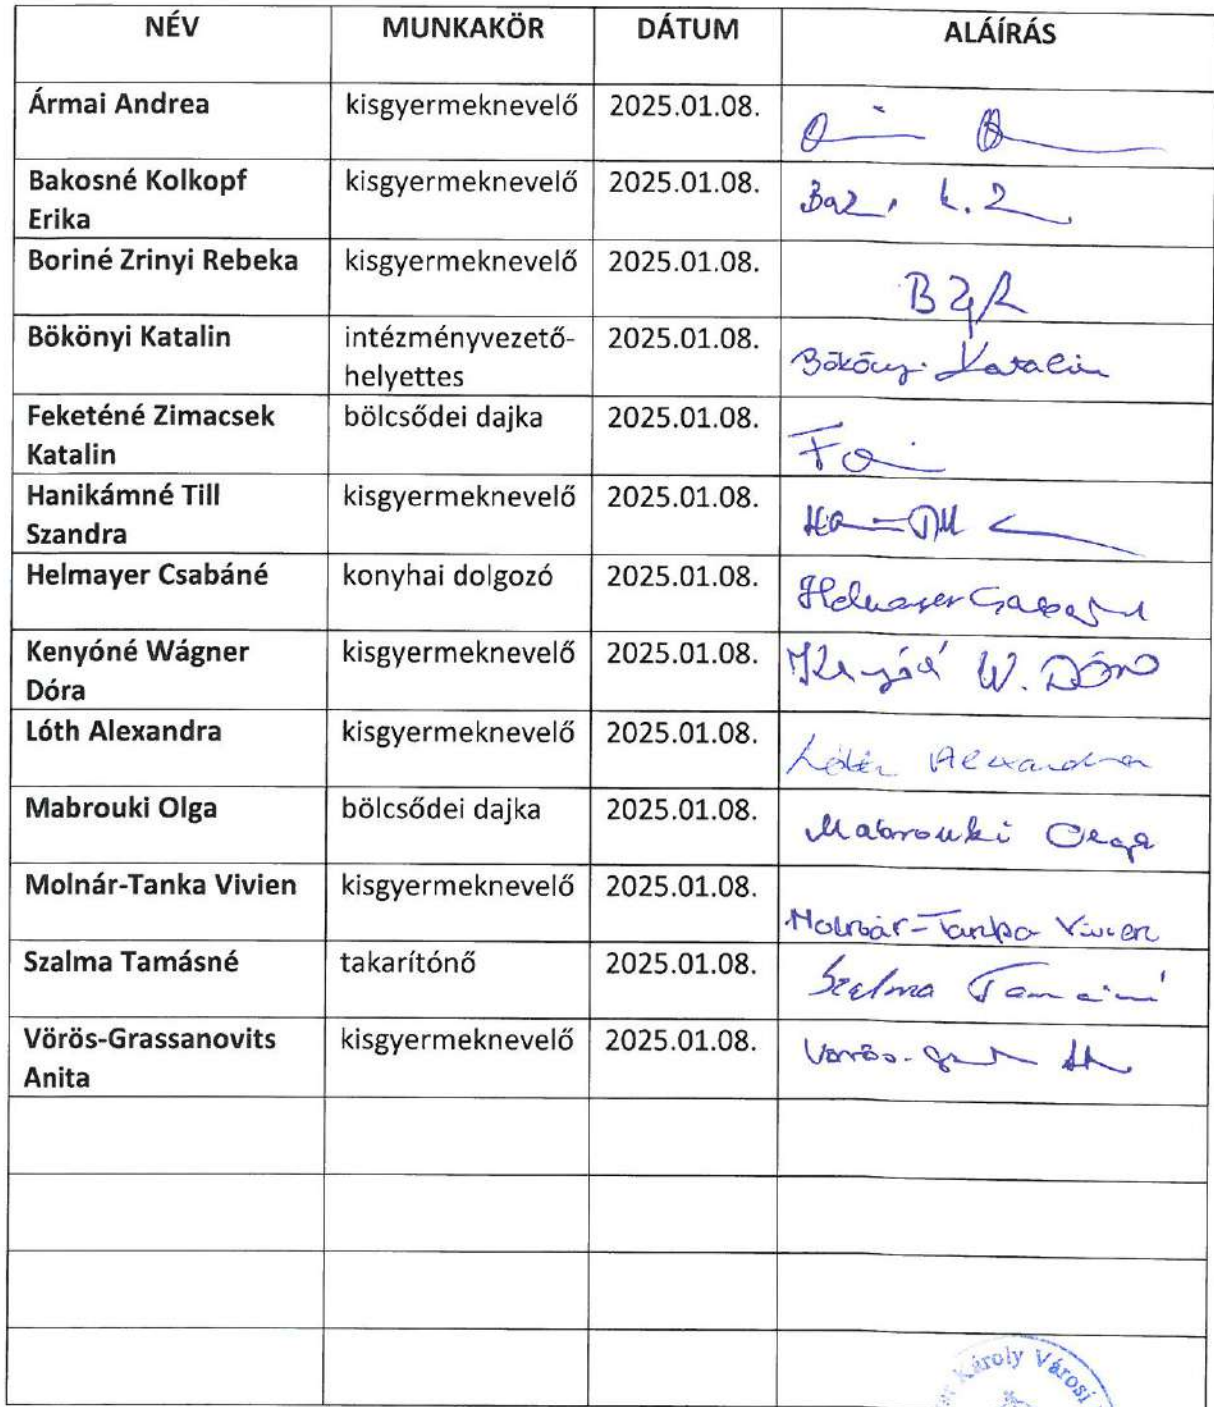 NÉV MUNKAKÖR DÁTUM ALÁÍRÁS
Ármai Andrea kisgyermeknevelő 2025.01.08.
Bakosné Kolkopf kisgyermeknevelő 2025.01.08.
Erika
Boriné Zrinyi Rebeka kisgyermeknevelő 2025.01.08. BZR
Bökönyi Katalin intézményvezető- 2025.01.08. Bökönyi Katalin
helyettes
Feketéné Zimacsek bölcsődei dajka 2025.01.08.
Katalin
Hanikámné Till kisgyermeknevelő 2025.01.08.
Szandra
Helmayer Csabáné konyhai dolgozó 2025.01.08. Helmayer Csabáné
Kenyóné Wágner kisgyermeknevelő 2025.01.08. Kenyóné W. Dóra
Dóra
Lóth Alexandra kisgyermeknevelő 2025.01.08. Lóth Alexandra
Mabrouki Olga bölcsődei dajka 2025.01.08. Mabrouki Olga
Molnár-Tanka Vivien kisgyermeknevelő 2025.01.08. Molnár-Tanka Vivien
Szalma Tamásné takarítónő 2025.01.08. Szalma Tamásné
Vörös-Grassanovits kisgyermeknevelő 2025.01.08. Vörös-
Anita
Károly Városi